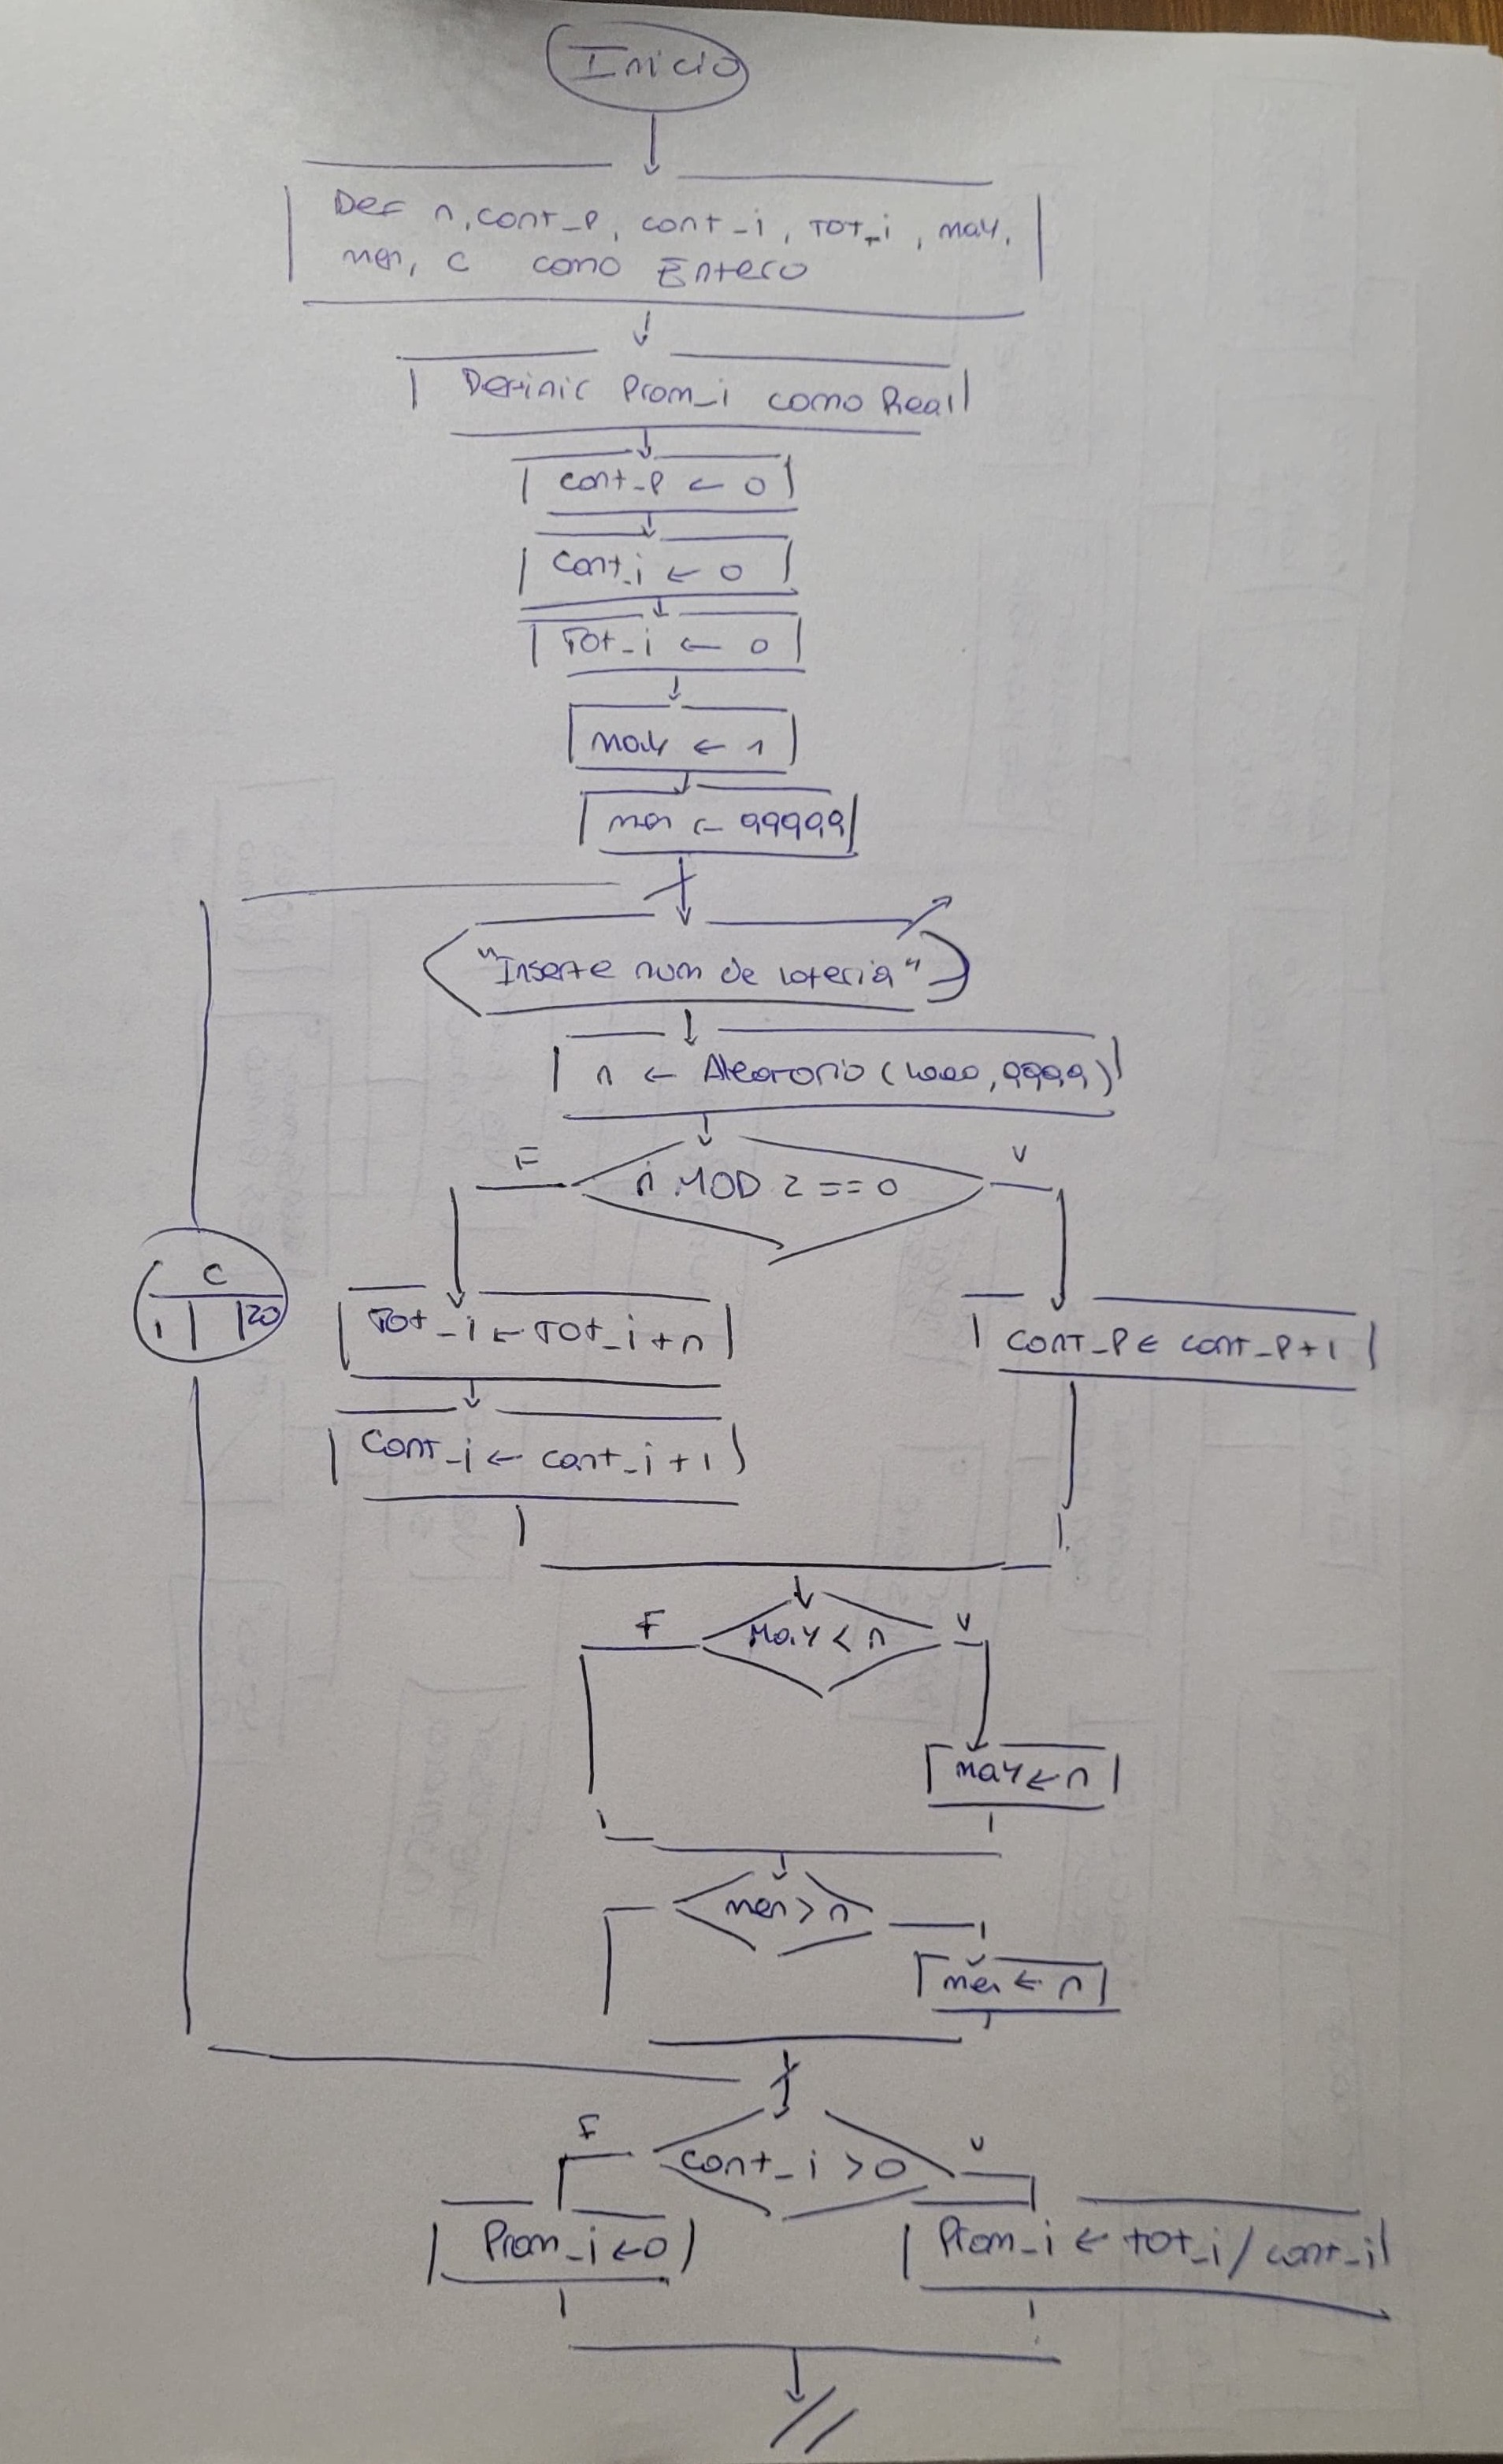 Inicio
Def n, cont_P, cont_i, TOT_i, may,
men, c como Entero
Definir Prom_i como Real
cont_P ← 0
Cont_i ← 0
Tot_i ← 0
may ← 1
men ← 99999
"Inserte num de loteria"
n ← Aleatorio (1000, 9999)
F
n MOD 2 == 0
V
C
1 20
Tot_i ← TOT_i + n
CONT_P ← CONT_P + 1
Cont_i ← cont_i + 1
F
May < n
V
may ← n
men > n
men ← n
F
cont_i > 0
V
Prom_i ← 0
Prom_i ← tot_i / cont_i